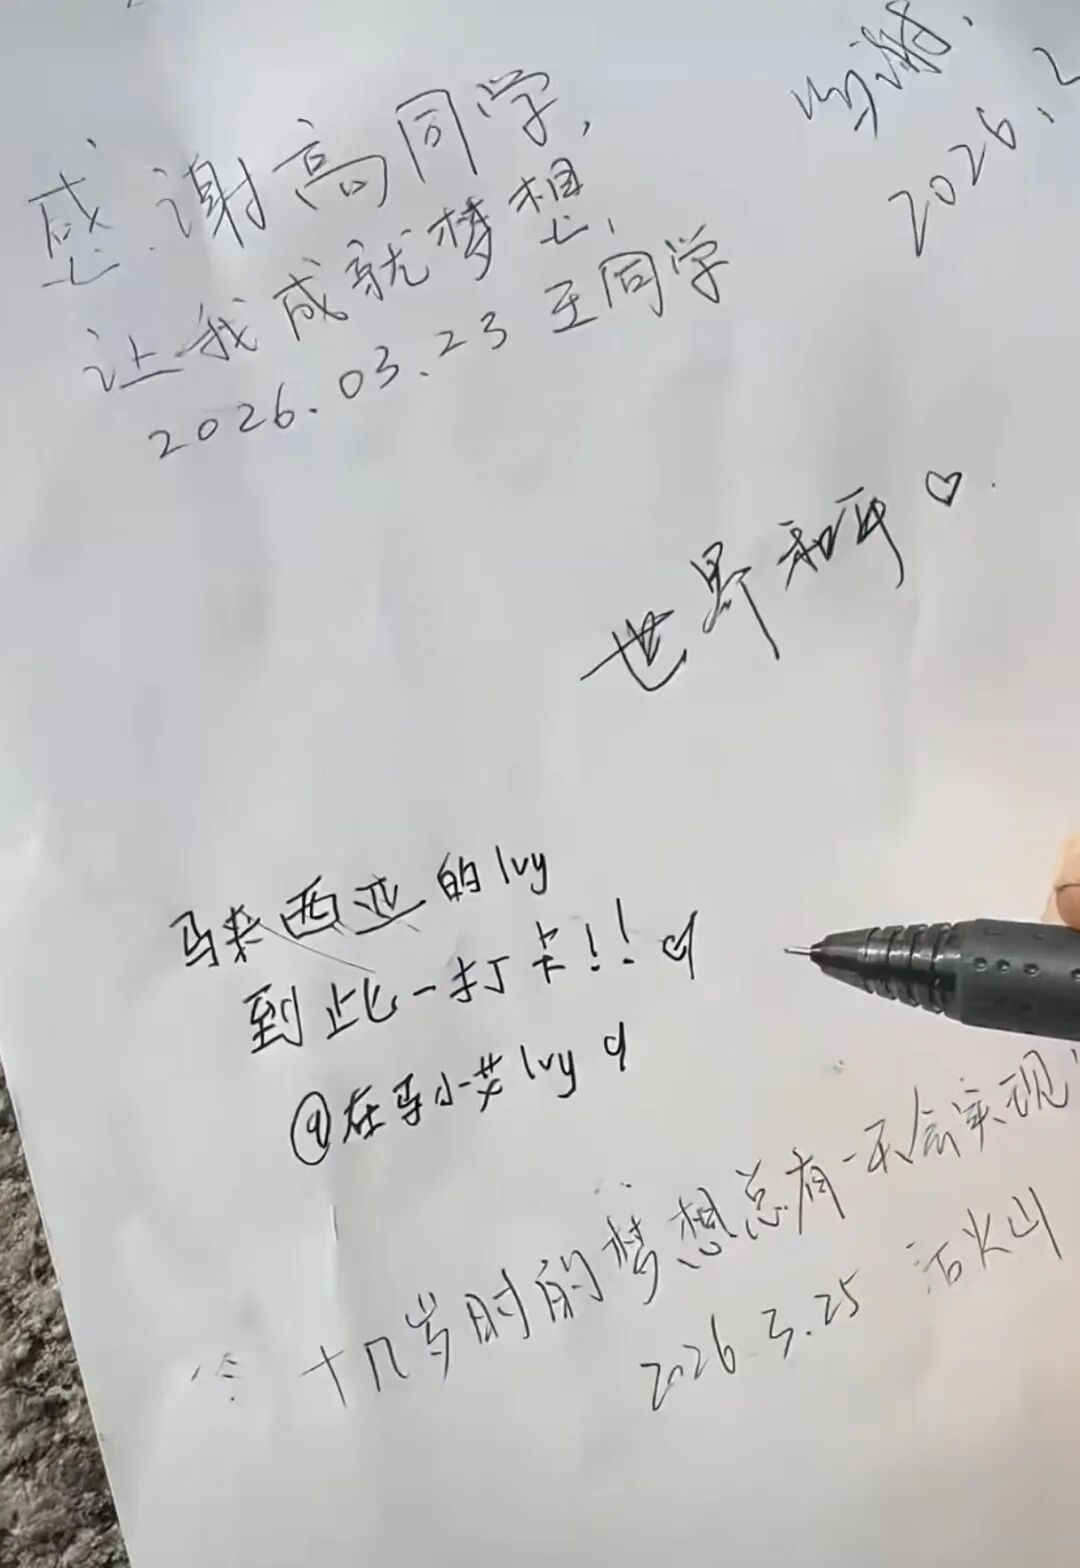 感谢高同学,
让我成就梦想,
2026.03.23 至同学
2026.
世界和平♡.
马来西亚的 Ivy
到此一打卡!!♡
@在马小艾 Ivy
十几岁时的梦想总有一天会实现
2026.3.25 活火山